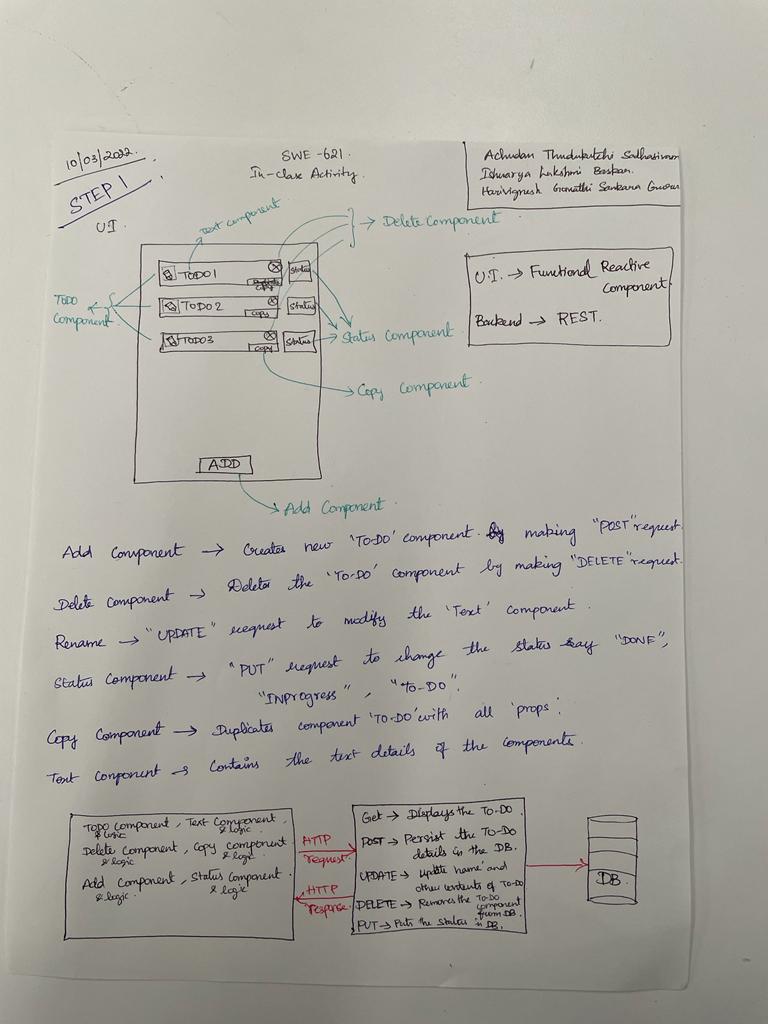 10/03/2022.
STEP 1
SWE-621.
In-class Activity.
Ishwarya Lakshmi Baskan.
U.I
Text component
Delete Component
TODO 1
Copy
Status
TODO 2
Copy
Status
TODO 3
Copy
Status
TODO
Component
Status Component
Copy Component
ADD
Add Component
U.I. → Functional Reactive
Component.
Backend → REST.
Add Component → Creates new 'TO-DO' component by making "POST" request.
Delete Component → Deletes the 'TO-DO' component by making "DELETE" request.
Rename → "UPDATE" request to modify the 'Text' component.
Status Component → "PUT" request to change the status say "DONE",
"INProgress", "TO-DO".
Copy Component → Duplicates component 'TO-DO' with all 'props'.
Text Component → Contains the text details of the components.
TODO Component, Text Component,
& logic & logic.
Delete Component, Copy component
& logic & logic.
Add Component, Status Component
& logic. & logic.
HTTP
request
HTTP
response.
Get → Displays the TO-DO.
POST → Persist the TO-DO
details in the DB.
UPDATE → Update 'name' and
other contents of TO-DO
DELETE → Removes the TO-DO
component
from DB.
PUT → Puts the status in DB.
DB.